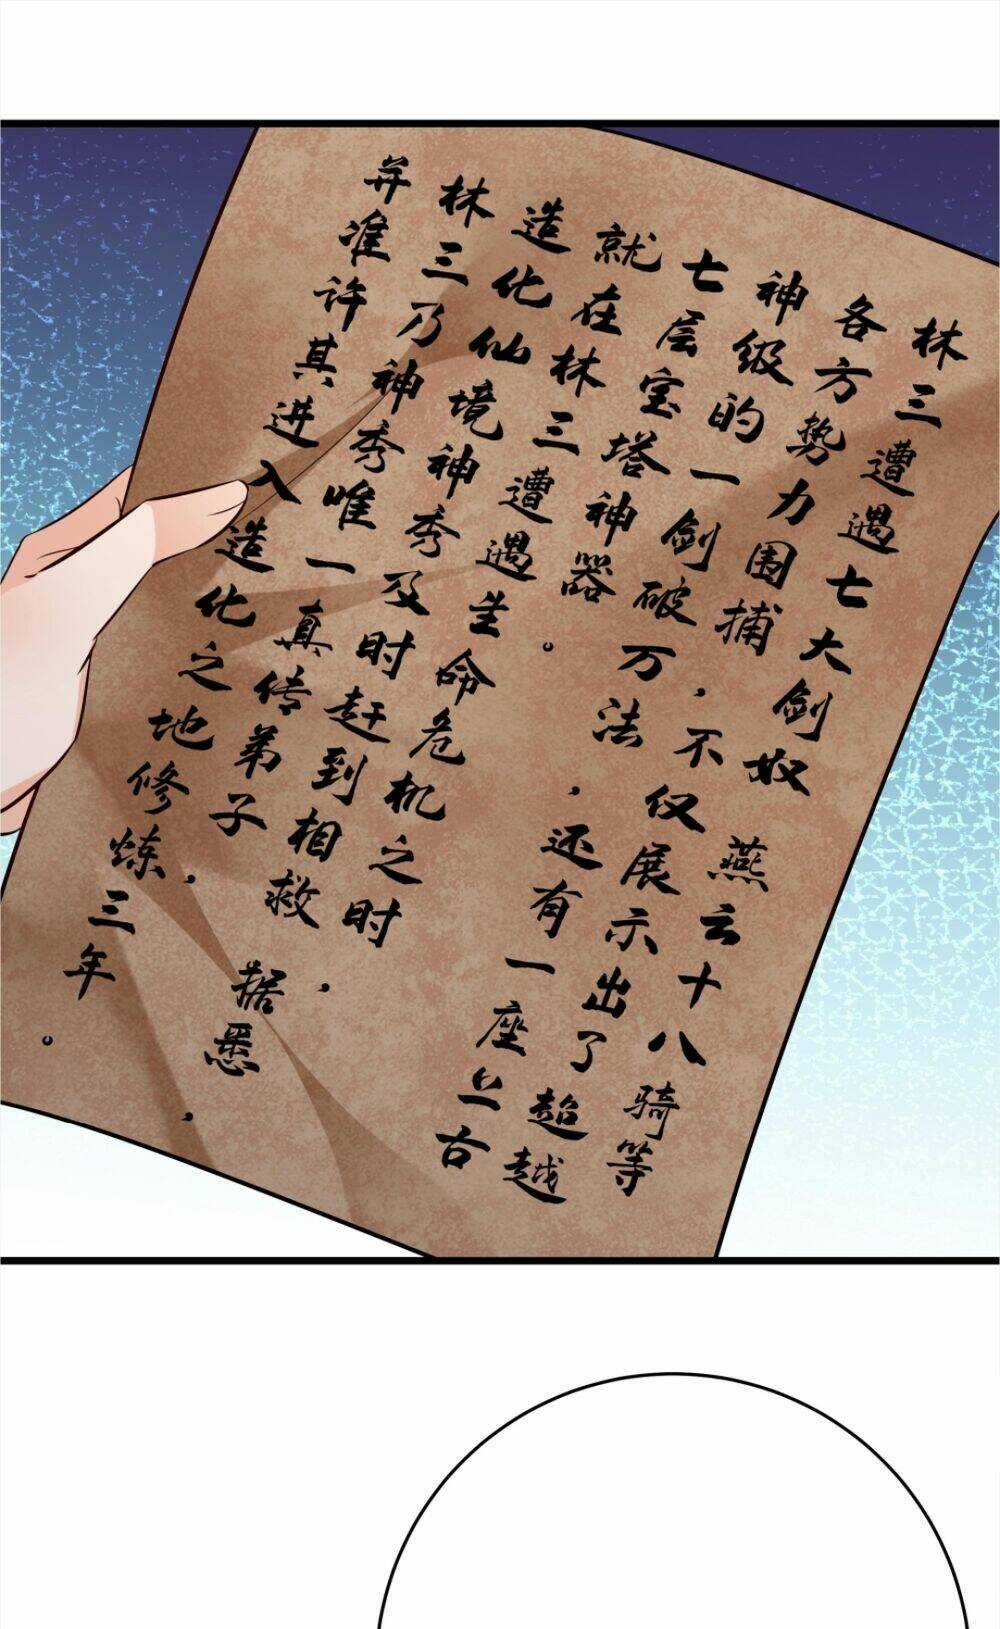 林三遭遇七大剑奴 燕云十八骑等
各方势力围捕，不仅展示出了超越
神级的一剑破万法，还有一座上古
七层宝塔神器。
就在林三遭遇生命危机之时，
造化仙境神秀及时赶到相救 据悉，
林三乃神秀唯一真传弟子，
并准许其进入造化之地修炼三年。